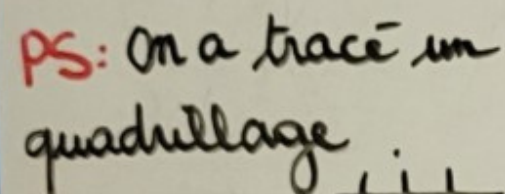 PS: On a tracé un
quadrillage